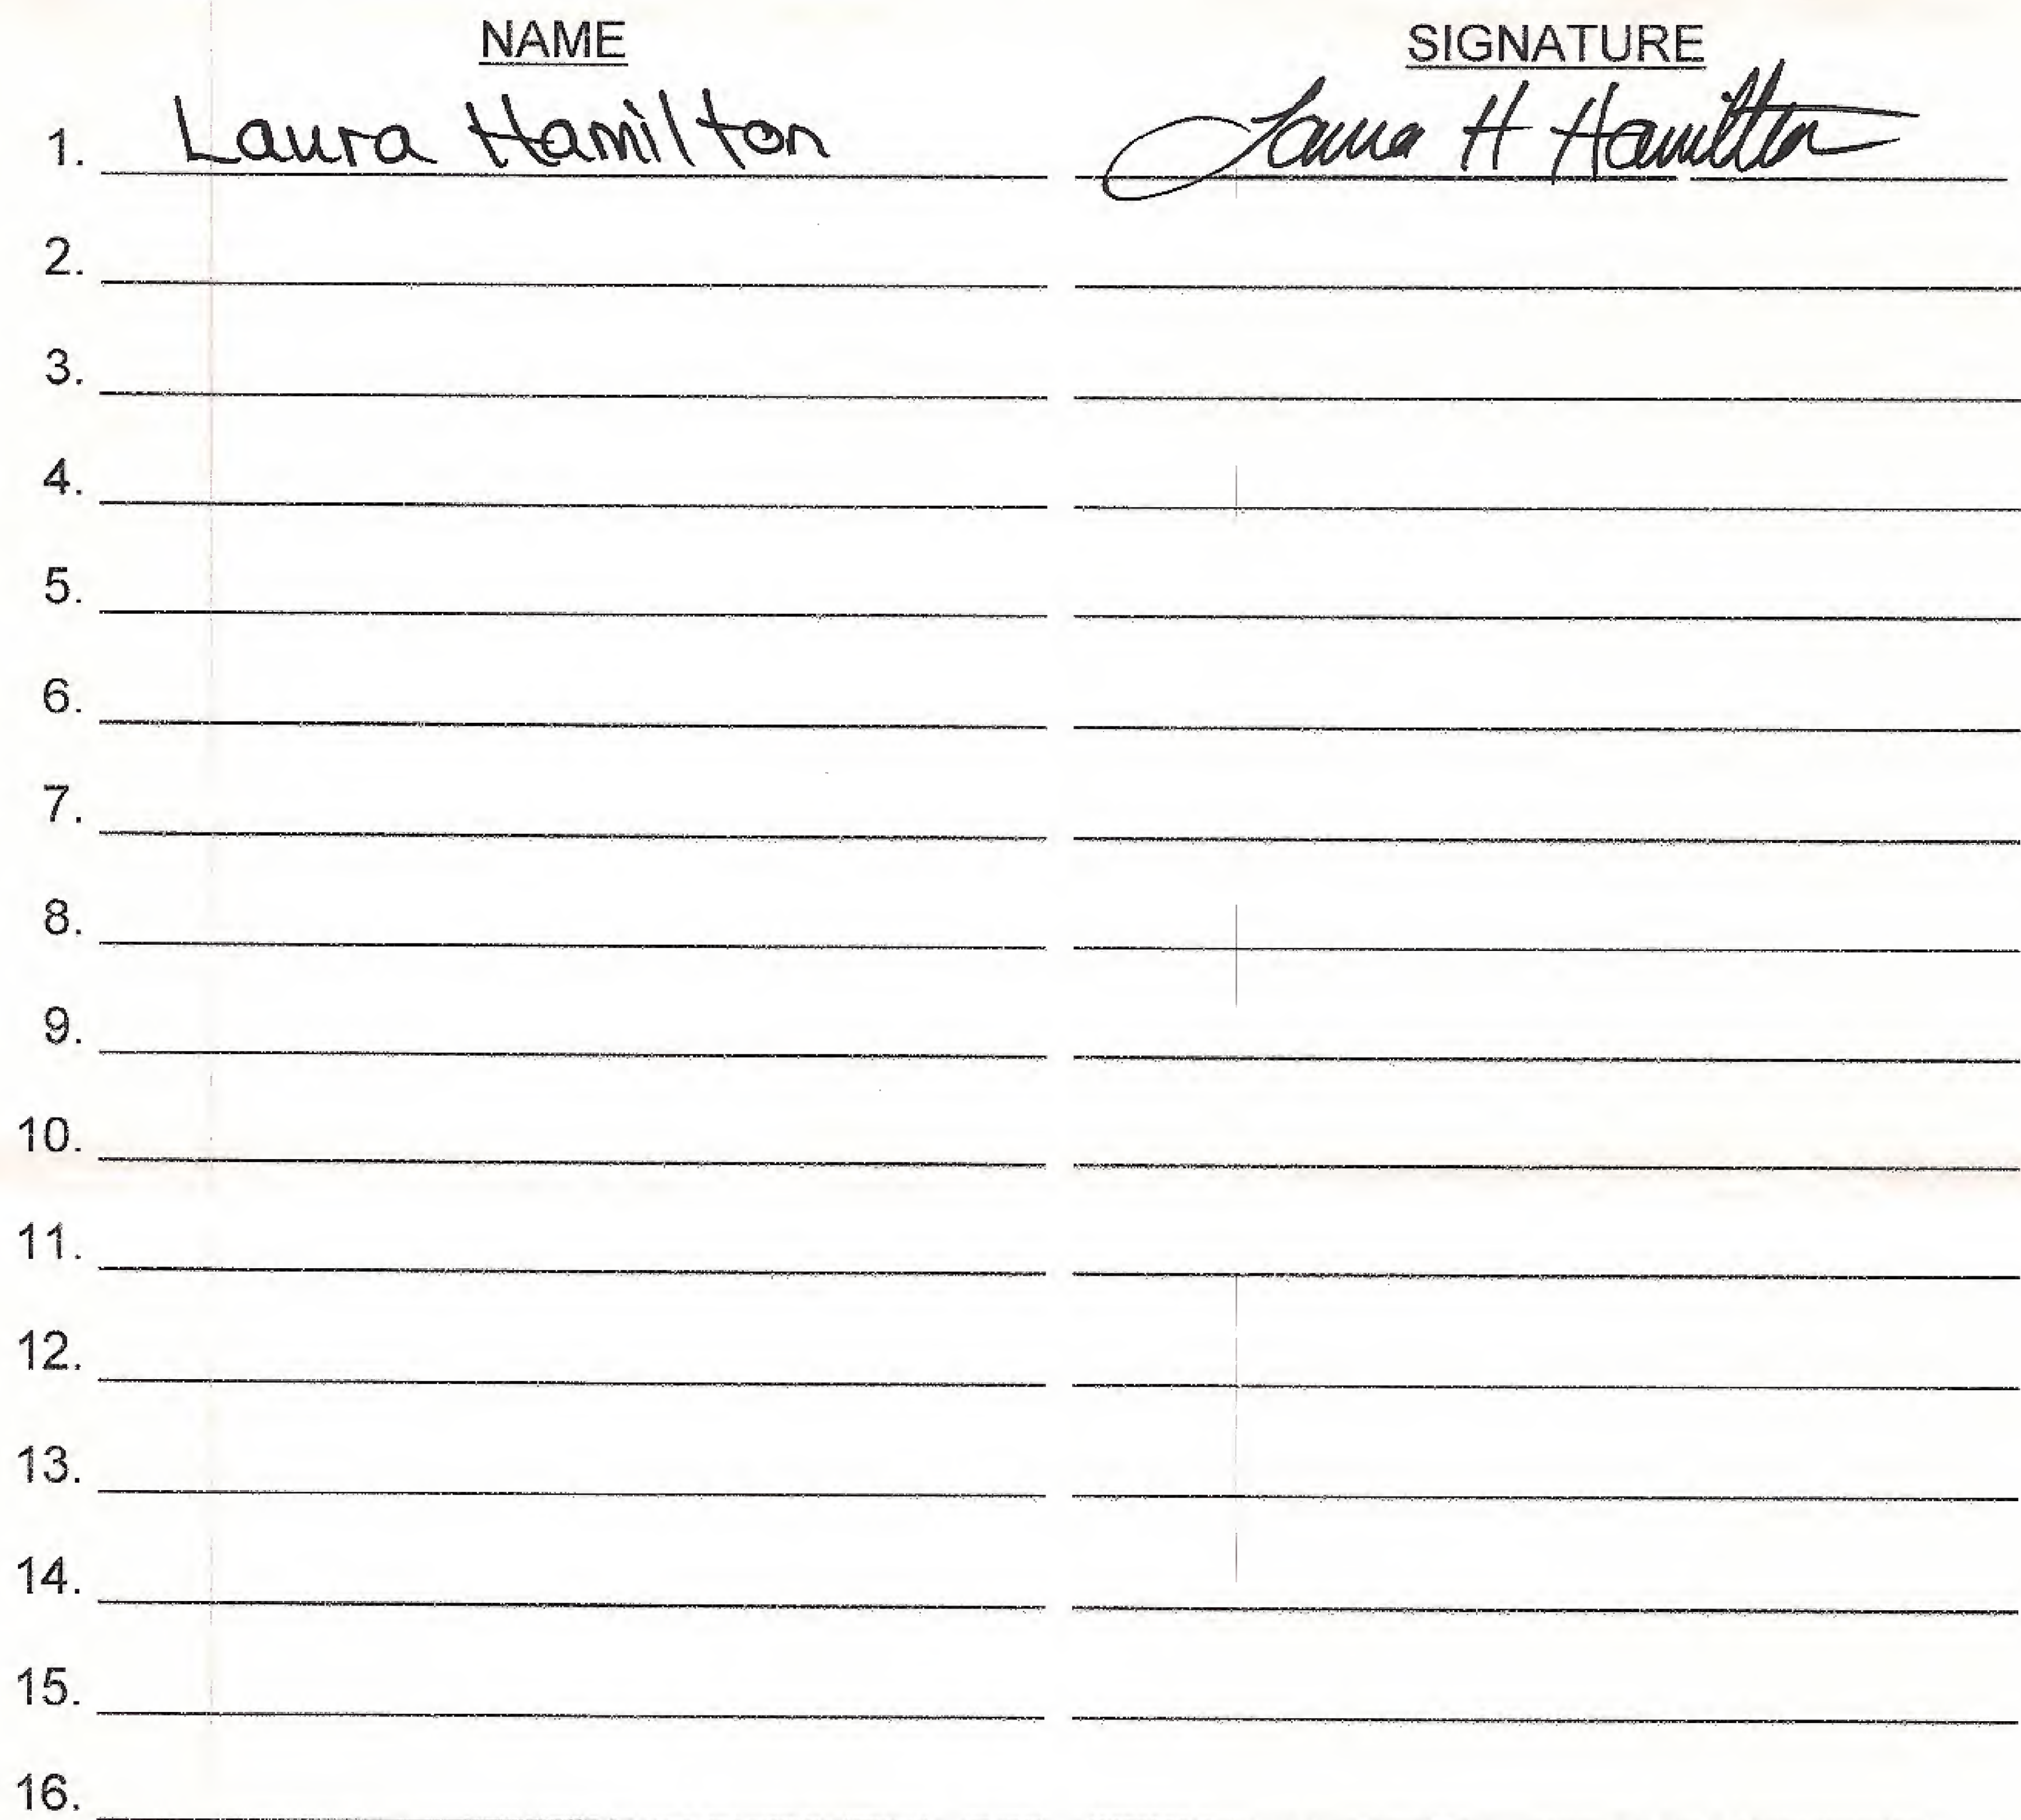 NAME SIGNATURE
1. Laura Hamilton Laura H Hamilton
2.
3.
4.
5.
6.
7.
8.
9.
10.
11.
12.
13.
14.
15.
16.